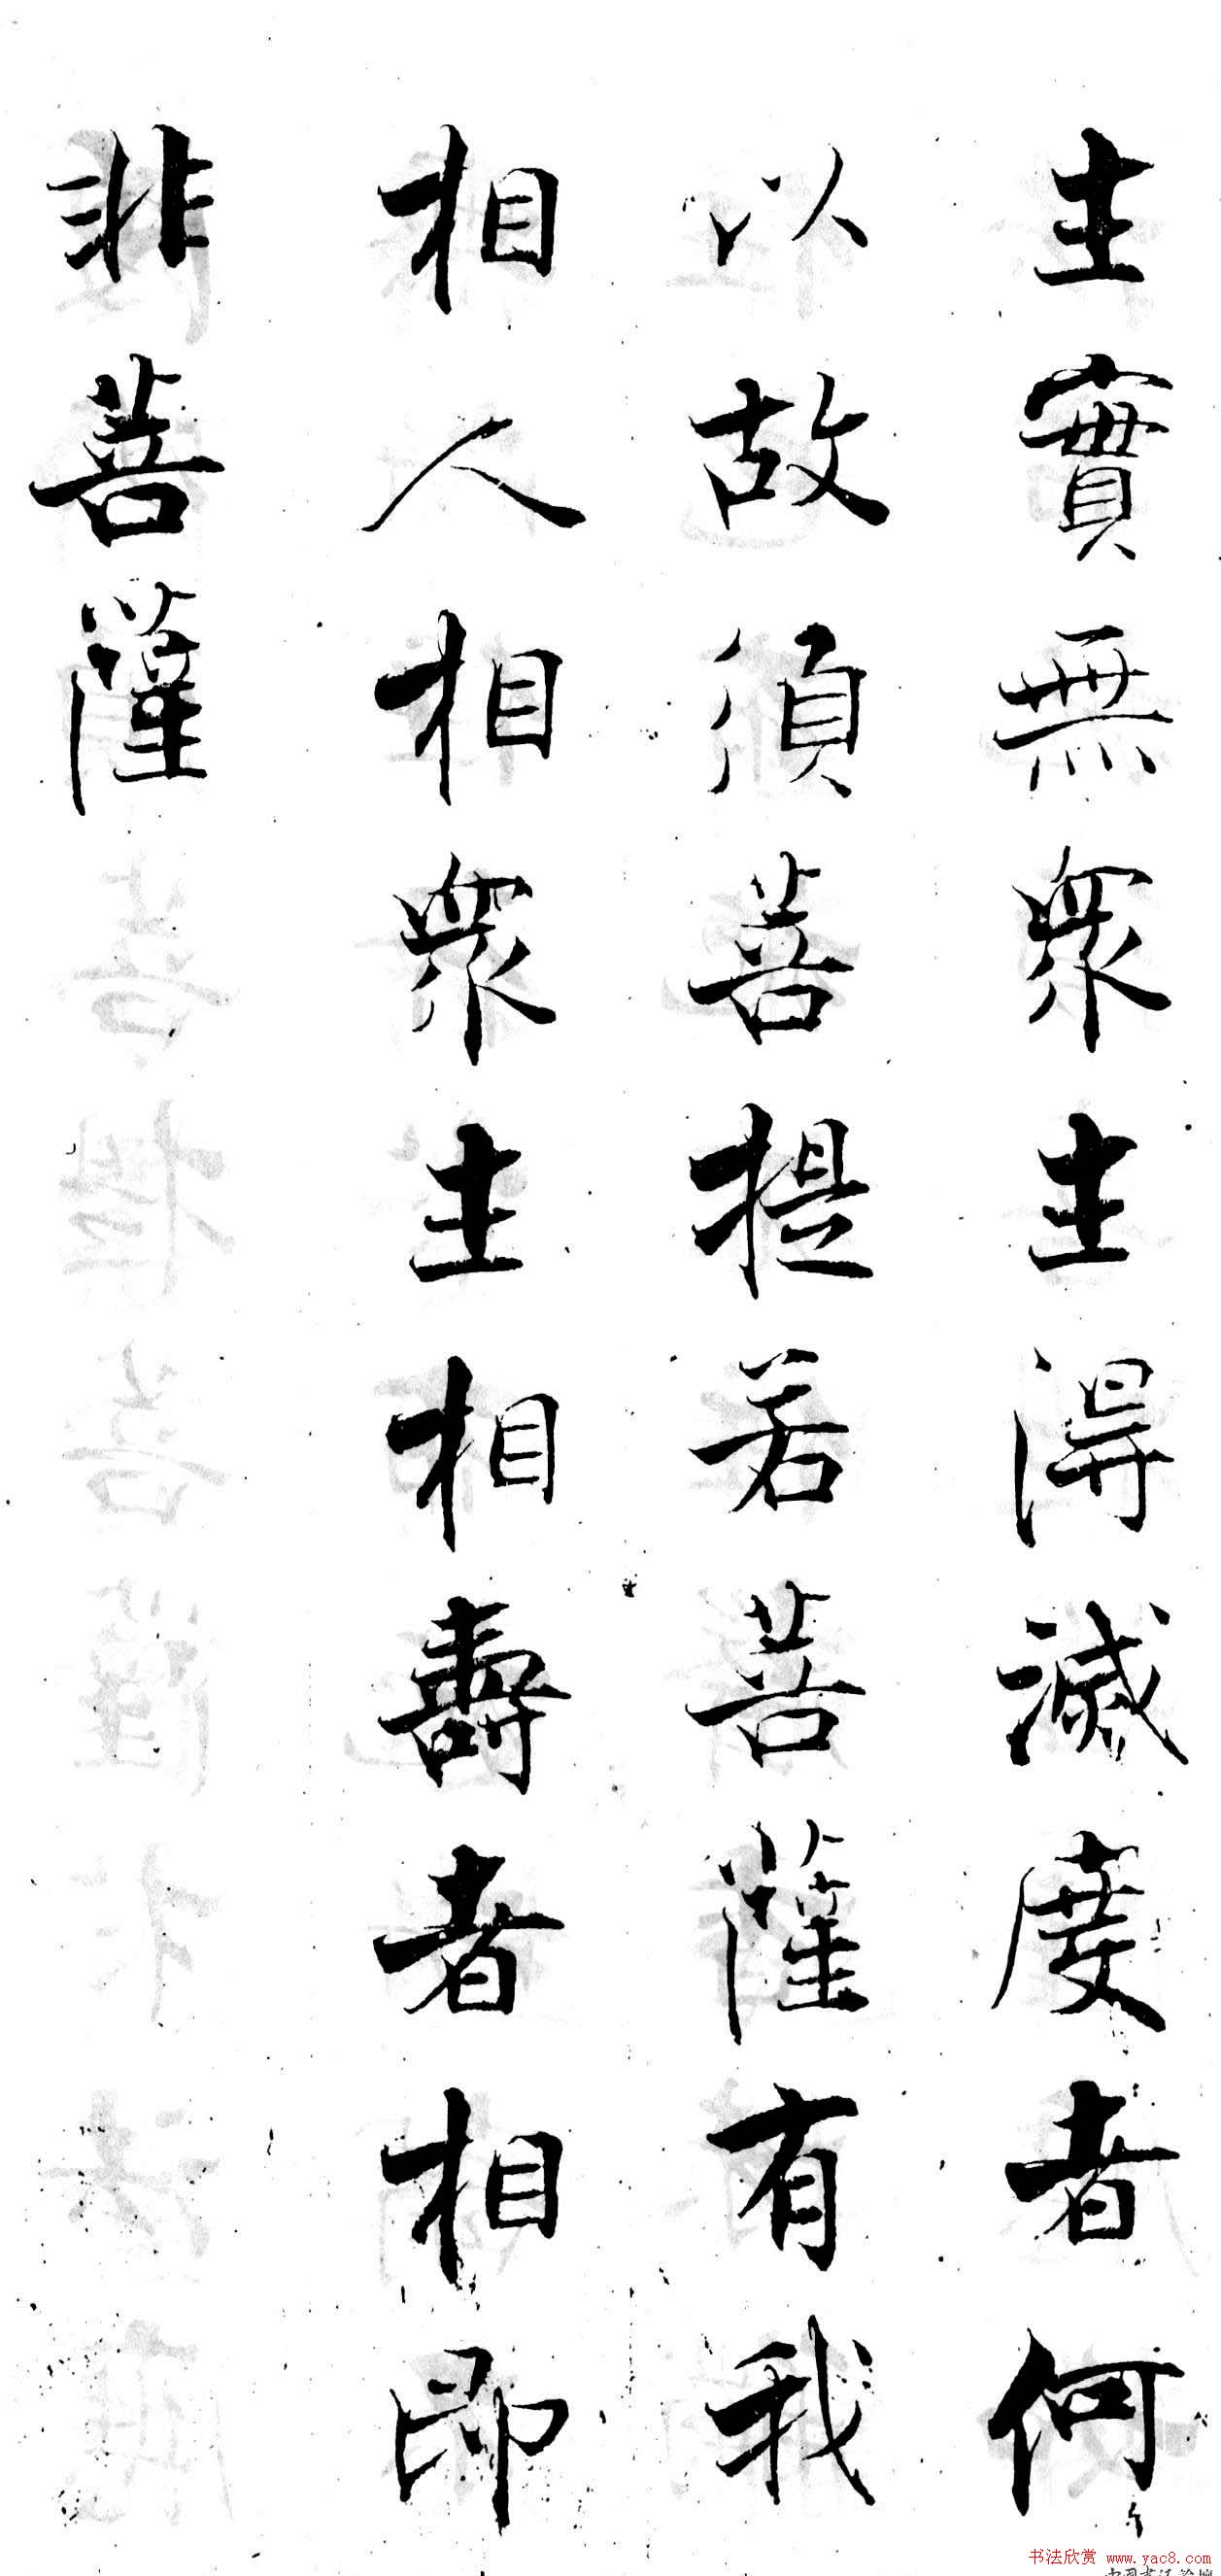 生實無衆生得滅度者何
以故須菩提若菩薩有我
相人相衆生相壽者相即
非菩薩
书法欣赏 www.yac8.com